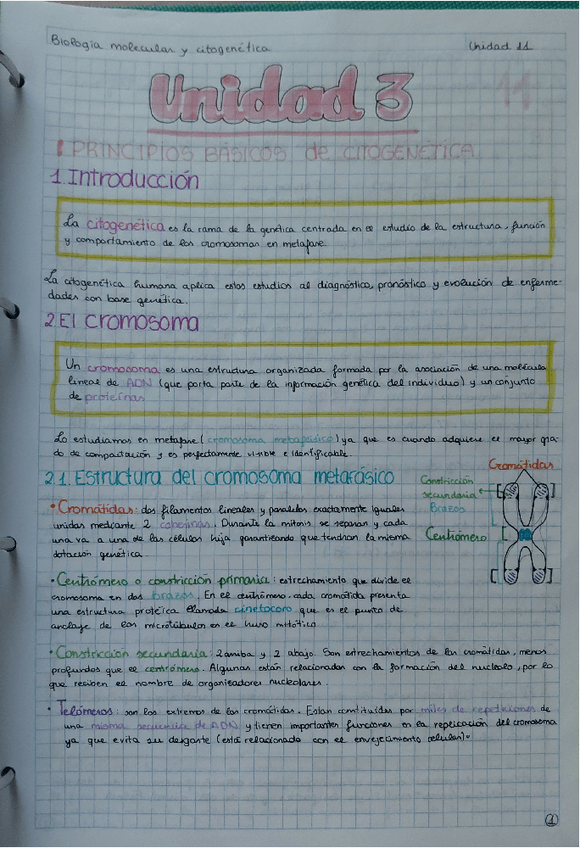 Biología molecular y citogenética Unidad 11
Unidad 3
11
PRINCIPIOS BÁSICOS de CITOGENÉTICA
1. Introducción
La citogenética es la rama de la genética centrada en el estudio de la estructura, función
y comportamiento de los cromosomas en metafase.
La citogenética humana aplica estos estudios al diagnóstico, pronóstico y evolución de enferme-
dades con base genética.
2. El cromosoma
Un cromosoma es una estructura organizada formada por la asociación de una molécula
lineal de ADN (que porta parte de la información genética del individuo) y un conjunto
de proteínas
Lo estudiamos en metafase (cromosoma metafásico) ya que es cuando adquiere el mayor gra-
do de compactación y es perfectamente visible e identificable.
2.1. Estructura del cromosoma metafásico
Cromátidas
Constricción
secundaria
Brazos
Centrómero
• Cromátidas: dos filamentos lineales y paralelos exactamente iguales
unidas mediante 2 cohesinas. Durante la mitosis se separan y cada
una va a una de las células hija garantizando que tendrán la misma
dotación genética.
• Centrómero o constricción primaria: estrechamiento que divide el
cromosoma en dos brazos. En el centrómero cada cromátida presenta
una estructura protéica llamada cinetocoro que es el punto de
anclaje de los microtúbulos en el huso mitótico
• Constricción secundaria: 2 arriba y 2 abajo. Son estrechamientos de las cromátidas, menos
profundos que el centrómero. Algunas están relacionadas con la formación del nucleolo, por lo
que reciben el nombre de organizadores nucleolares.
• Telómeros: son los extremos de las cromátidas. Están constituidas por miles de repeticiones de
una misma secuencia de ADN y tienen importantes funciones en la replicación del cromosoma
ya que evita su desgaste (está relacionado con el envejecimiento celular).
1